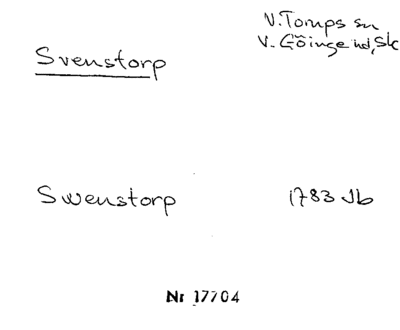 Svenstorp
V. Torups sn
V. Göinge hd, Sk
Swenstorp
1783 Jb
Nr 17704